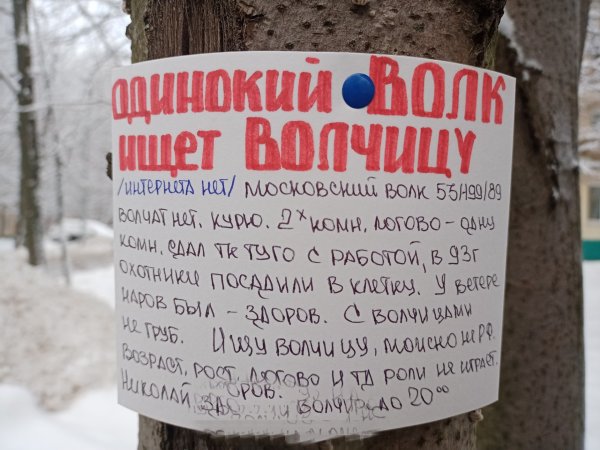 ОДИНОКИЙ ВОЛК
ИЩЕТ ВОЛЧИЦУ
/ИНТЕРНЕТА НЕТ/ МОСКОВСКИЙ ВОЛК 55/199/89
ВОЛЧАТ НЕТ. КУРЮ. 2Х КОМН. ЛОГОВО - ОДНУ
КОМН. СДАЛ ТК ТУГО С РАБОТОЙ, В 93Г
ОХОТНИКИ ПОСАДИЛИ В КЛЕТКУ. У ВЕТЕРЕ
НАРОВ БЫЛ - ЗДОРОВ. С ВОЛЧИЦАМИ
НЕ ГРУБ. ИЩУ ВОЛЧИЦУ, МОЖНО НЕ РФ.
ВОЗРАСТ, РОСТ, ЛОГОВО И ТД РОЛИ НЕ ИГРАЕТ.
НИКОЛАЙ ДО 20 00